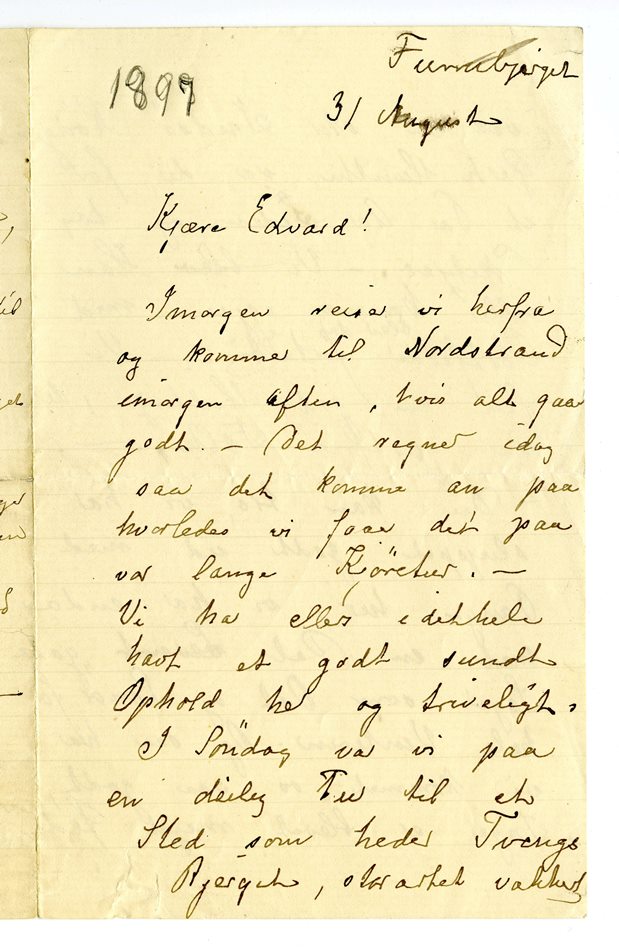 1897
Furubjerget
31 August
Kjære Edvard!
Imorgen reise vi herfra
og komme til Nordstrand
imorgen aften, hvis alt gaa
godt. — Det regner idag
saa det komme an paa
hvorledes vi faae det paa
vor lange Kjöretur. —
Vi ha ellers idethele
havt et godt sundt
Ophold he og triveligt.
I Söndag va vi paa
en deilig Tu til et
Sted som heder
Bjerget, storartet vakkert